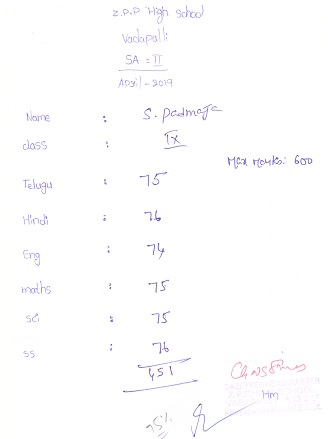 Z.P.P High school
Vadapalli
SA = II
April - 2019
Name : S. Padmaja
class : IX
Max Marks: 600
Telugu : 75
Hindi : 76
Eng : 74
maths : 75
sci : 75
ss : 76
451
Hm
75%